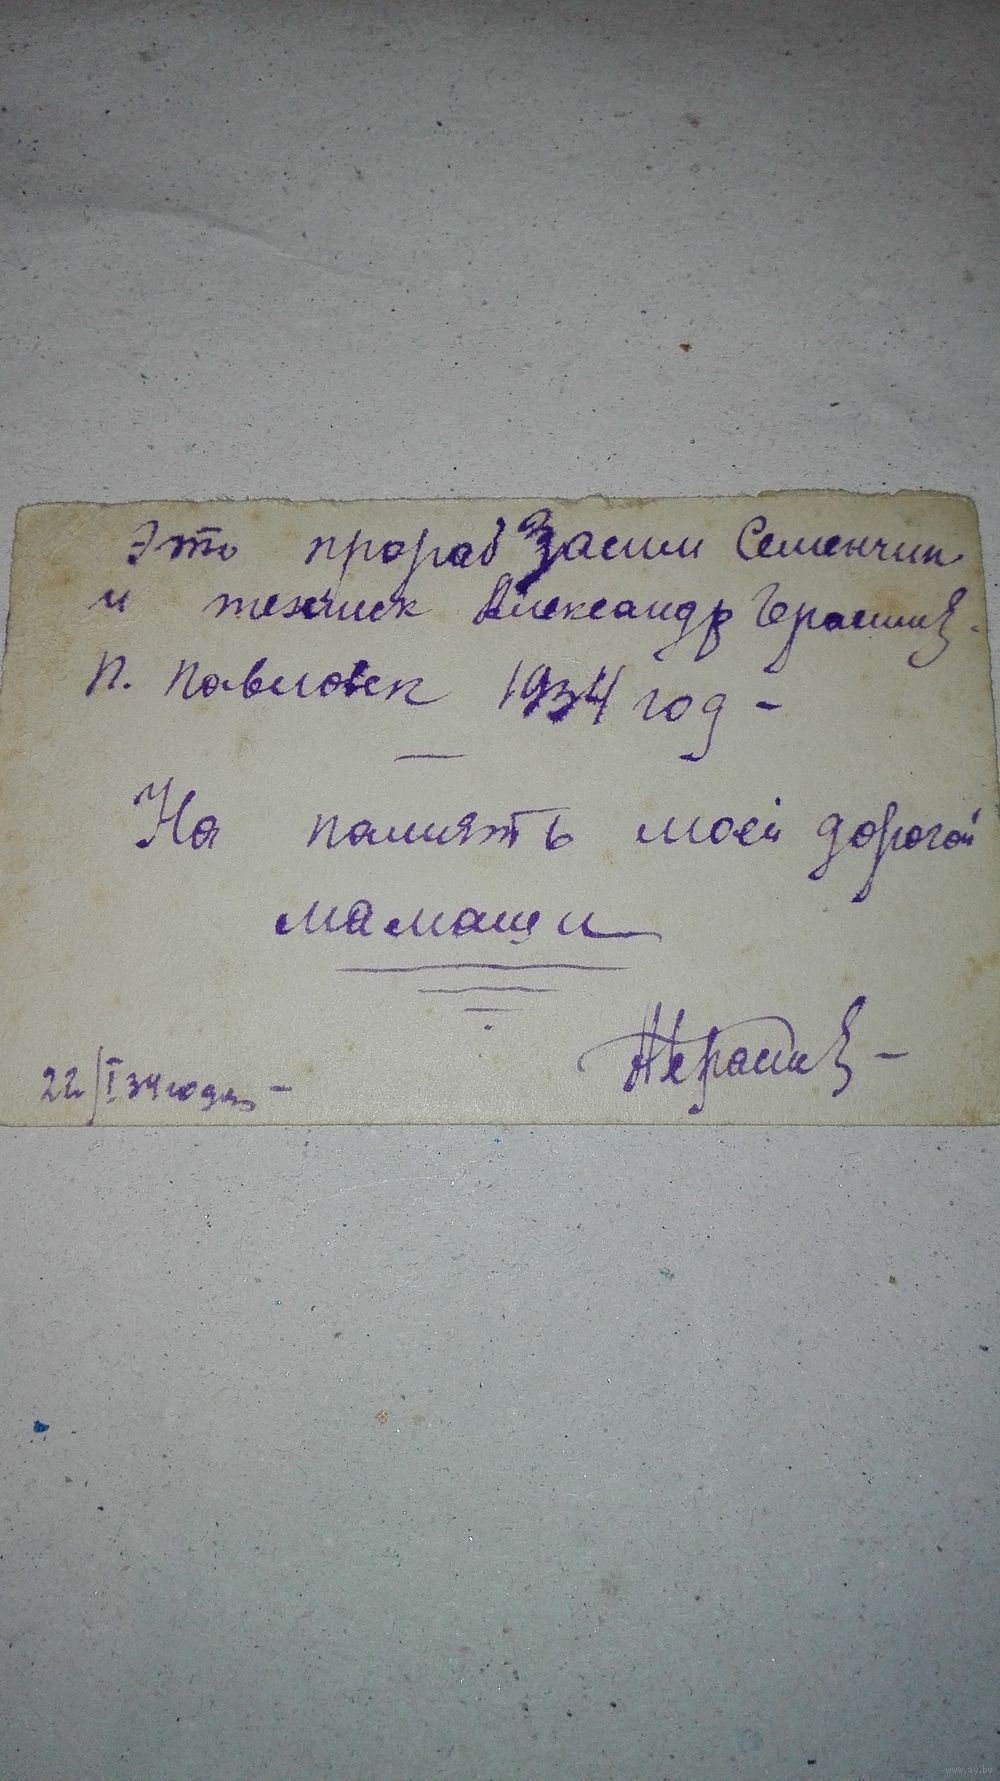 Это прораб Зосим Семенчин
и техник Александр Герасимов.
п. Павловск 1934 год –
На память моей дорогой
мамаши
22/I 34 года –
www.ay.by